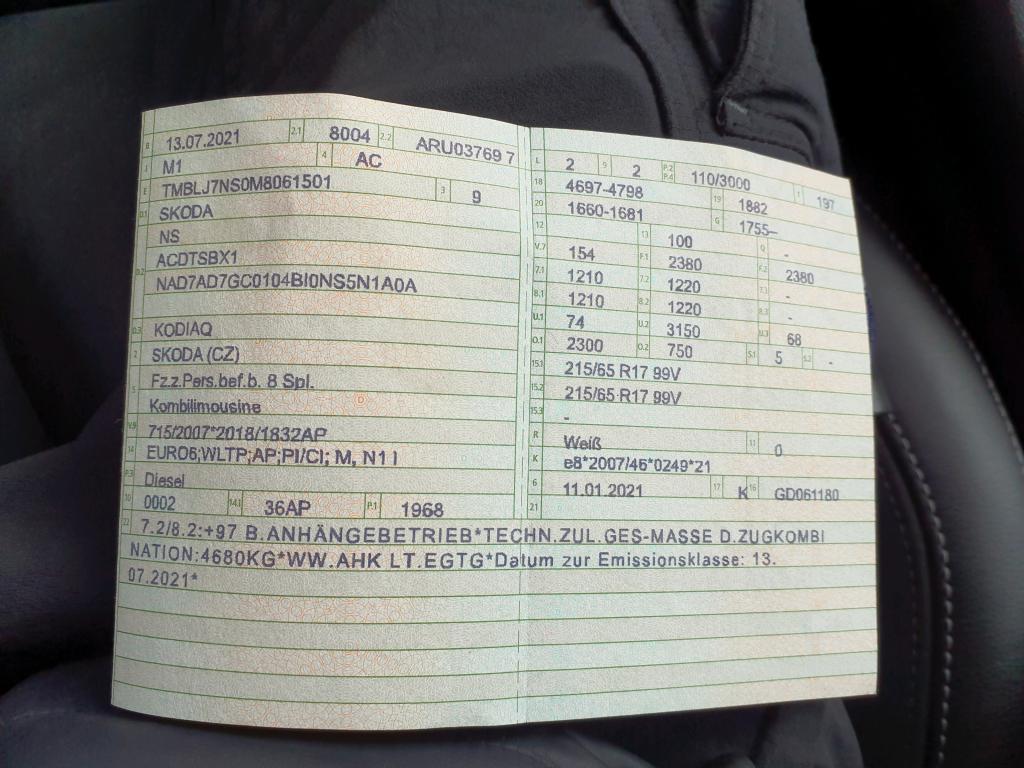 B 13.07.2021 2.1 8004 2.2 ARU03769 7
J M1 4 AC
E TMBLJ7NS0M8061501 3 9
D.1 SKODA
NS
D.2 ACDTSBX1
NAD7AD7GC0104BI0NS5N1A0A
D.3 KODIAQ
2 SKODA (CZ)
5 Fz.z.Pers.bef.b. 8 Spl.
Kombilimousine
V.9 715/2007*2018/1832AP
14 EURO6;WLTP;AP;PI/CI; M, N1 I
P.3 Diesel
10 0002 14.1 36AP P.1 1968
L 2 9 2 P.2 P.4 110/3000 T 197
18 4697-4798 19 1882
20 1660-1681 G 1755–
12 13 100 Q -
V.7 154 F.1 2380 F.2 2380
7.1 1210 7.2 1220 7.3 -
8.1 1210 8.2 1220 8.3 -
U.1 74 U.2 3150 U.3 68
O.1 2300 O.2 750 S.1 5 S.2 -
15.1 215/65 R17 99V
15.2 215/65 R17 99V
15.3 -
R Weiß 11 0
K e8*2007/46*0249*21
6 11.01.2021 17 K 16 GD061180
21
22 7.2/8.2:+97 B.ANHÄNGEBETRIEB*TECHN.ZUL.GES-MASSE D.ZUGKOMBI
NATION:4680KG*WW.AHK LT.EGTG*Datum zur Emissionsklasse: 13.
07.2021*